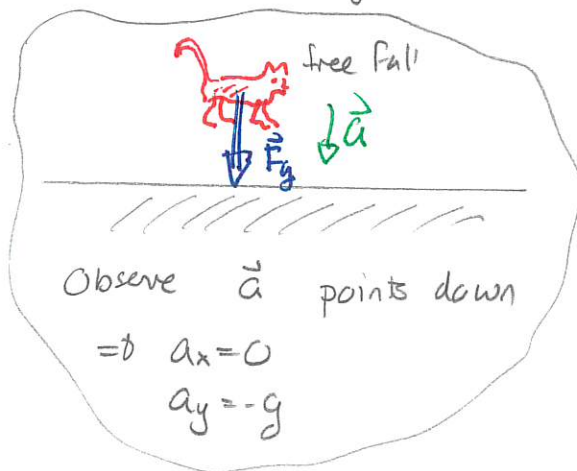 free fall
a⃗
F⃗g
Observe a⃗ points down
⇒ ax = 0
ay = -g